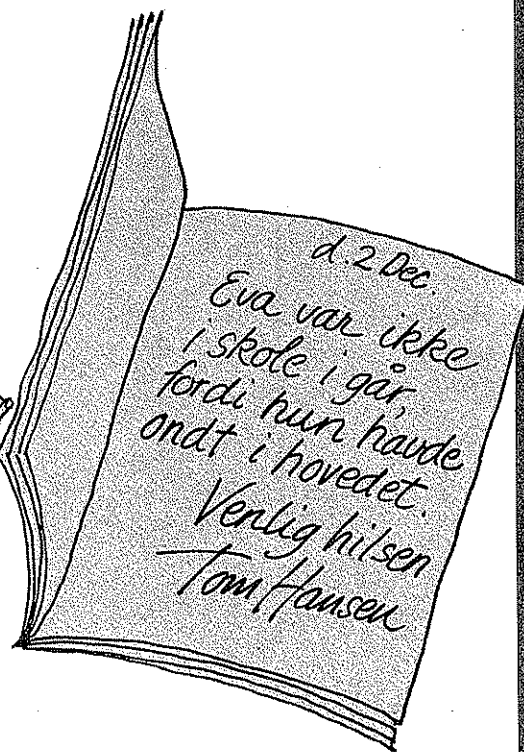 d. 2 Dec.
Eva var ikke
i skole i går,
fordi hun havde
ondt i hovedet.
Venlig hilsen
Tom Hansen